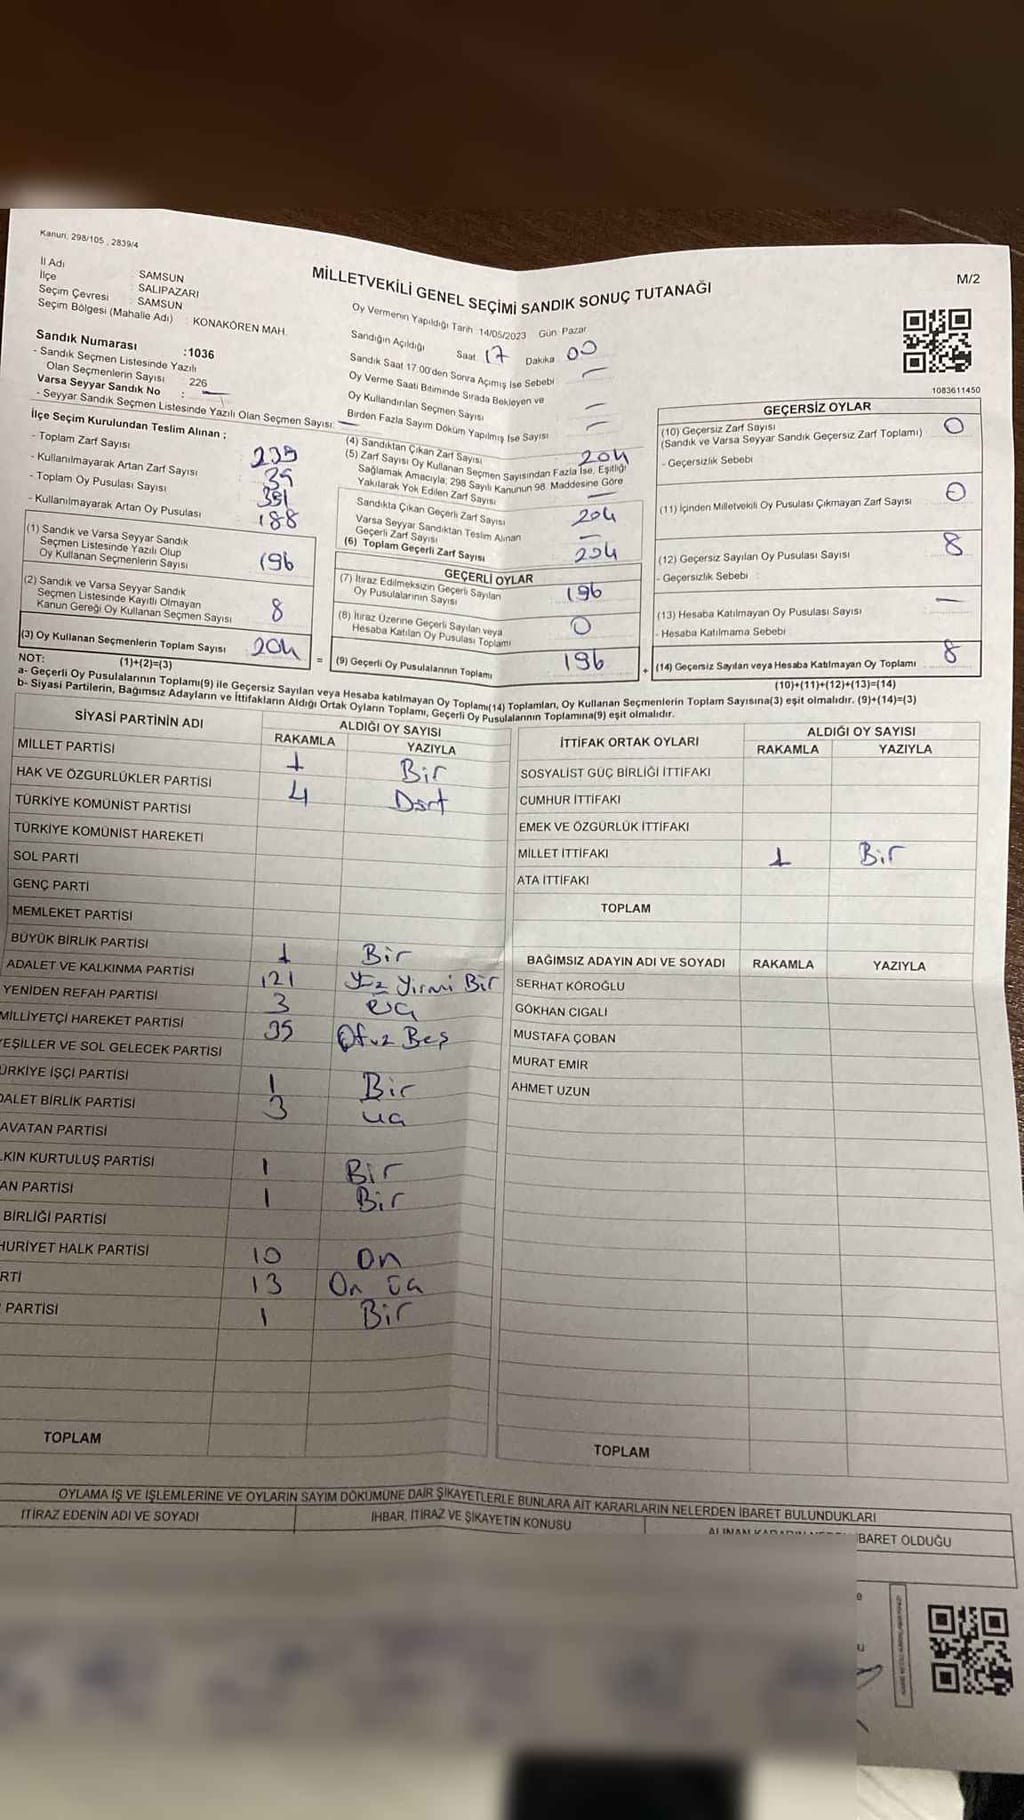 Kanun: 298/105 , 2839/4
MİLLETVEKİLİ GENEL SEÇİMİ SANDIK SONUÇ TUTANAĞI
M/2
İl Adı : SAMSUN
İlçe : SALIPAZARI
Seçim Çevresi : SAMSUN
Seçim Bölgesi (Mahalle Adı) : KONAKÖREN MAH.
Sandık Numarası :1036
- Sandık Seçmen Listesinde Yazılı
Olan Seçmenlerin Sayısı 226
Varsa Seyyar Sandık No : —
- Seyyar Sandık Seçmen Listesinde Yazılı Olan Seçmen Sayısı: —
İlçe Seçim Kurulundan Teslim Alınan :
- Toplam Zarf Sayısı 239
- Kullanılmayarak Artan Zarf Sayısı 35
- Toplam Oy Pusulası Sayısı
- Kullanılmayarak Artan Oy Pusulası 188
(1) Sandık ve Varsa Seyyar Sandık
Seçmen Listesinde Yazılı Olup
Oy Kullanan Seçmenlerin Sayısı 196
(2) Sandık ve Varsa Seyyar Sandık
Seçmen Listesinde Kayıtlı Olmayan
Kanun Gereği Oy Kullanan Seçmen Sayısı 8
(3) Oy Kullanan Seçmenlerin Toplam Sayısı 204
(1)+(2)=(3)
Oy Vermenin Yapıldığı Tarih : 14/05/2023 Gün: Pazar
Sandığın Açıldığı Saat 17 Dakika 00
Sandık Saat 17:00'den Sonra Açılmış İse Sebebi —
Oy Verme Saati Bitiminde Sırada Bekleyen ve
Oy Kullandırılan Seçmen Sayısı —
Birden Fazla Sayım Döküm Yapılmış İse Sayısı —
(4) Sandıktan Çıkan Zarf Sayısı 204
(5) Zarf Sayısı Oy Kullanan Seçmen Sayısından Fazla İse, Eşitliği
Sağlamak Amacıyla; 298 Sayılı Kanunun 98. Maddesine Göre
Yakılarak Yok Edilen Zarf Sayısı —
Sandıkta Çıkan Geçerli Zarf Sayısı 204
Varsa Seyyar Sandıktan Teslim Alınan
Geçerli Zarf Sayısı —
(6) Toplam Geçerli Zarf Sayısı 204
GEÇERLİ OYLAR
(7) İtiraz Edilmeksizin Geçerli Sayılan
Oy Pusulalarının Sayısı 196
(8) İtiraz Üzerine Geçerli Sayılan veya
Hesaba Katılan Oy Pusulası Toplamı 0
= (9) Geçerli Oy Pusulalarının Toplamı 196
1083611450
GEÇERSİZ OYLAR
(10) Geçersiz Zarf Sayısı 0
(Sandık ve Varsa Seyyar Sandık Geçersiz Zarf Toplamı)
- Geçersizlik Sebebi
(11) İçinden Milletvekili Oy Pusulası Çıkmayan Zarf Sayısı 0
(12) Geçersiz Sayılan Oy Pusulası Sayısı 8
- Geçersizlik Sebebi :
(13) Hesaba Katılmayan Oy Pusulası Sayısı —
- Hesaba Katılmama Sebebi
+ (14) Geçersiz Sayılan veya Hesaba Katılmayan Oy Toplamı 8
(10)+(11)+(12)+(13)=(14)
NOT:
a- Geçerli Oy Pusulalarının Toplamı(9) ile Geçersiz Sayılan veya Hesaba katılmayan Oy Toplamı(14) Toplamları, Oy Kullanan Seçmenlerin Toplam Sayısına(3) eşit olmalıdır. (9)+(14)=(3)
b- Siyasi Partilerin, Bağımsız Adayların ve İttifakların Aldığı Ortak Oyların Toplamı, Geçerli Oy Pusulalarının Toplamına(9) eşit olmalıdır.
SİYASİ PARTİNİN ADI ALDIĞI OY SAYISI
RAKAMLA YAZIYLA
MİLLET PARTİSİ 1 Bir
HAK VE ÖZGÜRLÜKLER PARTİSİ 4 Dört
TÜRKİYE KOMÜNİST PARTİSİ
TÜRKİYE KOMÜNİST HAREKETİ
SOL PARTİ
GENÇ PARTİ
MEMLEKET PARTİSİ
BÜYÜK BİRLİK PARTİSİ 1 Bir
ADALET VE KALKINMA PARTİSİ 121 Yüz Yirmi Bir
YENİDEN REFAH PARTİSİ 3 üç
MİLLİYETÇİ HAREKET PARTİSİ 35 Otuz Beş
YEŞİLLER VE SOL GELECEK PARTİSİ
ÜRKİYE İŞÇİ PARTİSİ 1 Bir
DALET BİRLİK PARTİSİ 3 üç
AVATAN PARTİSİ
LKIN KURTULUŞ PARTİSİ 1 Bir
AN PARTİSİ 1 Bir
BİRLİĞİ PARTİSİ
HURİYET HALK PARTİSİ 10 On
RTİ 13 On üç
PARTİSİ 1 Bir
TOPLAM
İTTİFAK ORTAK OYLARI ALDIĞI OY SAYISI
RAKAMLA YAZIYLA
SOSYALİST GÜÇ BİRLİĞİ İTTİFAKI
CUMHUR İTTİFAKI
EMEK VE ÖZGÜRLÜK İTTİFAKI
MİLLET İTTİFAKI 1 Bir
ATA İTTİFAKI
TOPLAM
BAĞIMSIZ ADAYIN ADI VE SOYADI RAKAMLA YAZIYLA
SERHAT KÖROĞLU
GÖKHAN CIGALI
MUSTAFA ÇOBAN
MURAT EMİR
AHMET UZUN
TOPLAM
OYLAMA İŞ VE İŞLEMLERİNE VE OYLARIN SAYIM DÖKÜMÜNE DAİR ŞİKAYETLERLE BUNLARA AİT KARARLARIN NELERDEN İBARET BULUNDUKLARI
İTİRAZ EDENİN ADI VE SOYADI İHBAR, İTİRAZ VE ŞİKAYETİN KONUSU İBARET OLDUĞU